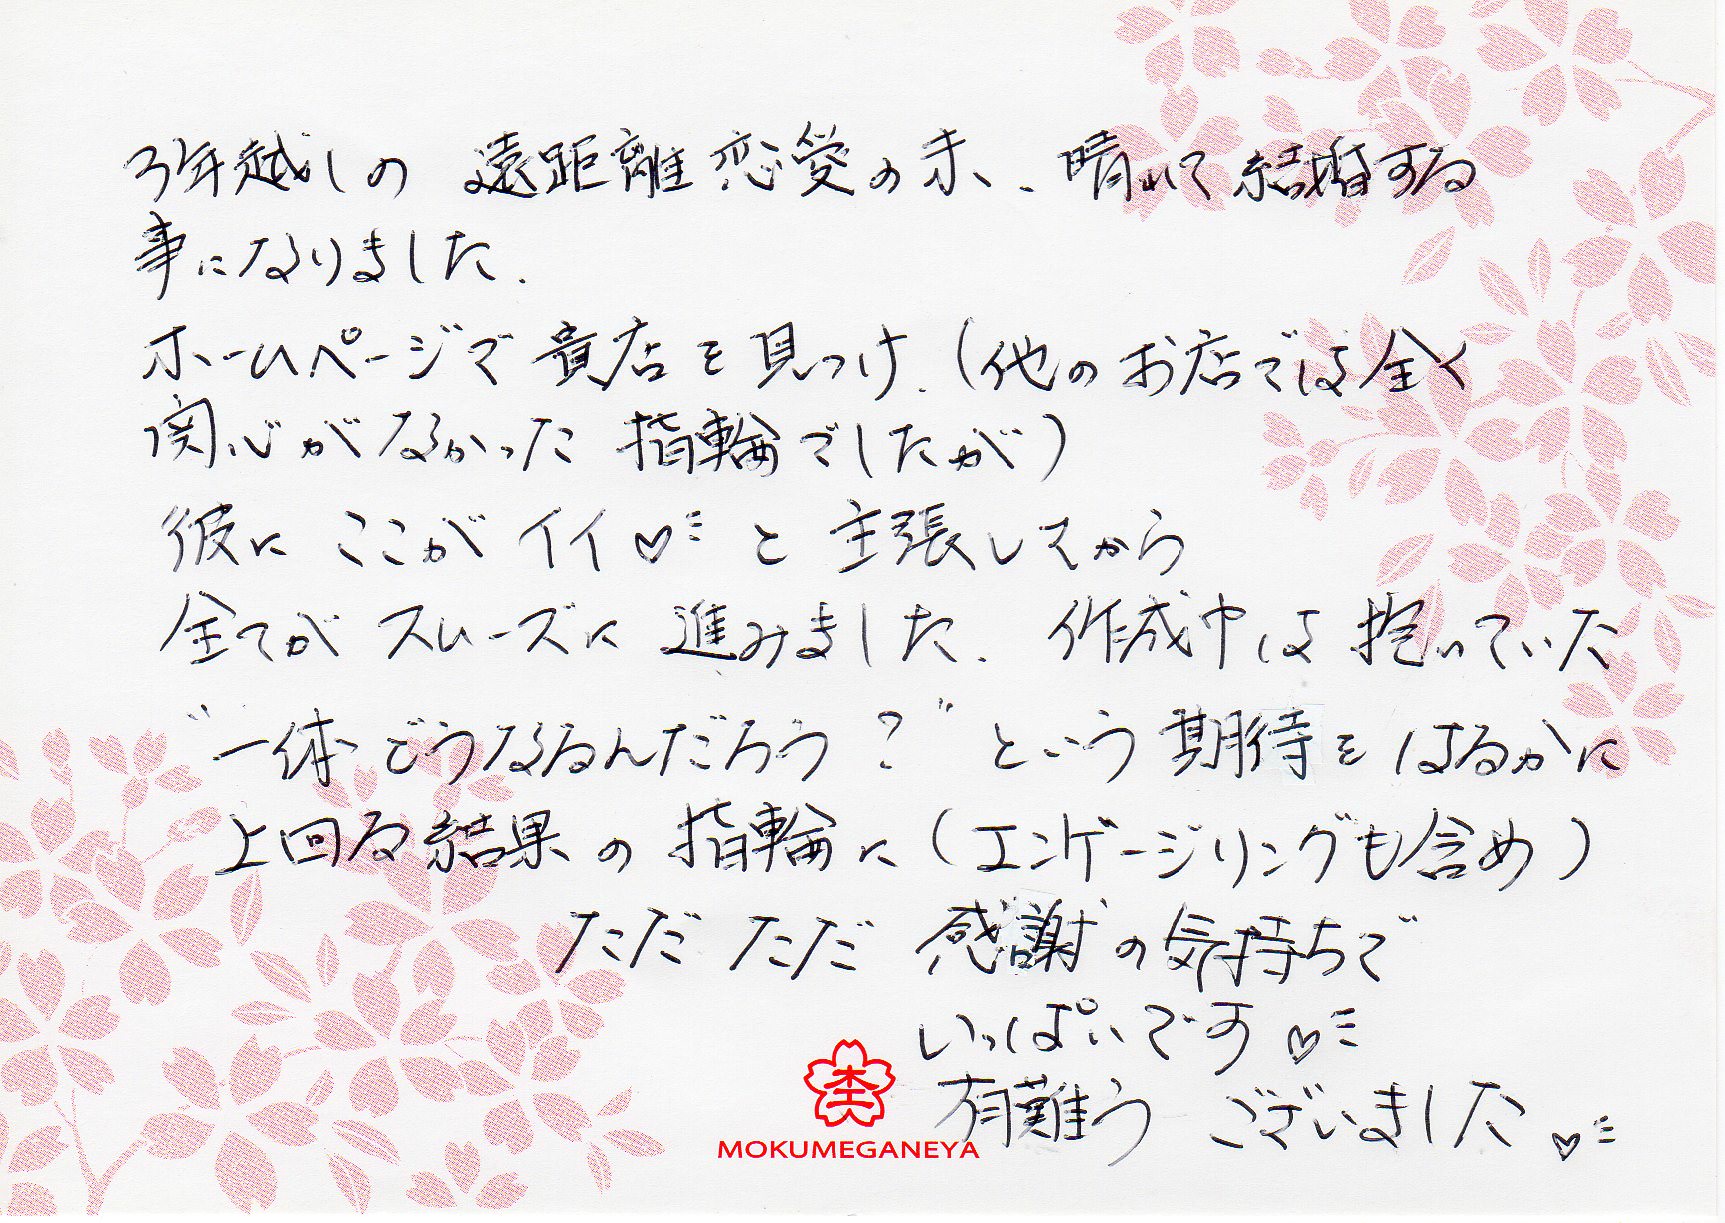 3年越しの 遠距離恋愛の末、晴れて結婚する
事になりました.
ホームページで 貴店を見つけ、(他のお店では全く
関心がなかった 指輪でしたが)
彼に ここが イイ♡ と 主張してから
全てが スムーズに 進みました. 作成中は 抱いていた
“一体どうなるんだろう?” という 期待を はるかに
上回る結果の 指輪に (エンゲージリングも含め)
ただ ただ 感謝の気持ちで
いっぱいです♡
有難う ございました♡
MOKUMEGANEYA